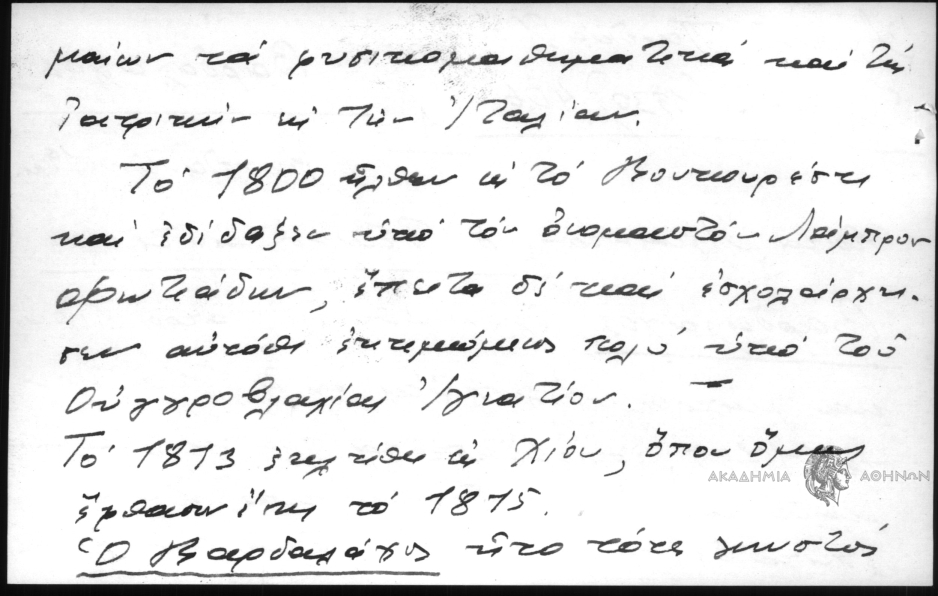 μαίων τά φυσικομαθηματικά καί τήν
Ἰατρικήν εἰς τήν Ἰταλίαν.
Τό 1800 ἦλθεν εἰς τό Βουκουρέστι
καί ἐδίδαξεν ὑπό τόν ὀνομαστόν Λάμπρον
Φωτιάδην, ἔπειτα δέ καί ἐσχολάρχη-
σεν αὐτόθι πολύ ὑπό τοῦ
Οὑγγροβλαχίας Ἰγνατίου. –
Τό 1813 εἰς Χίον, ὅπου ὅμως
ἔφθασεν τό 1815.
Ὁ Βαρδαλάχος ἦτο τότε γνωστός
ΑΚΑΔΗΜΙΑ ΑΘΗΝΩΝ